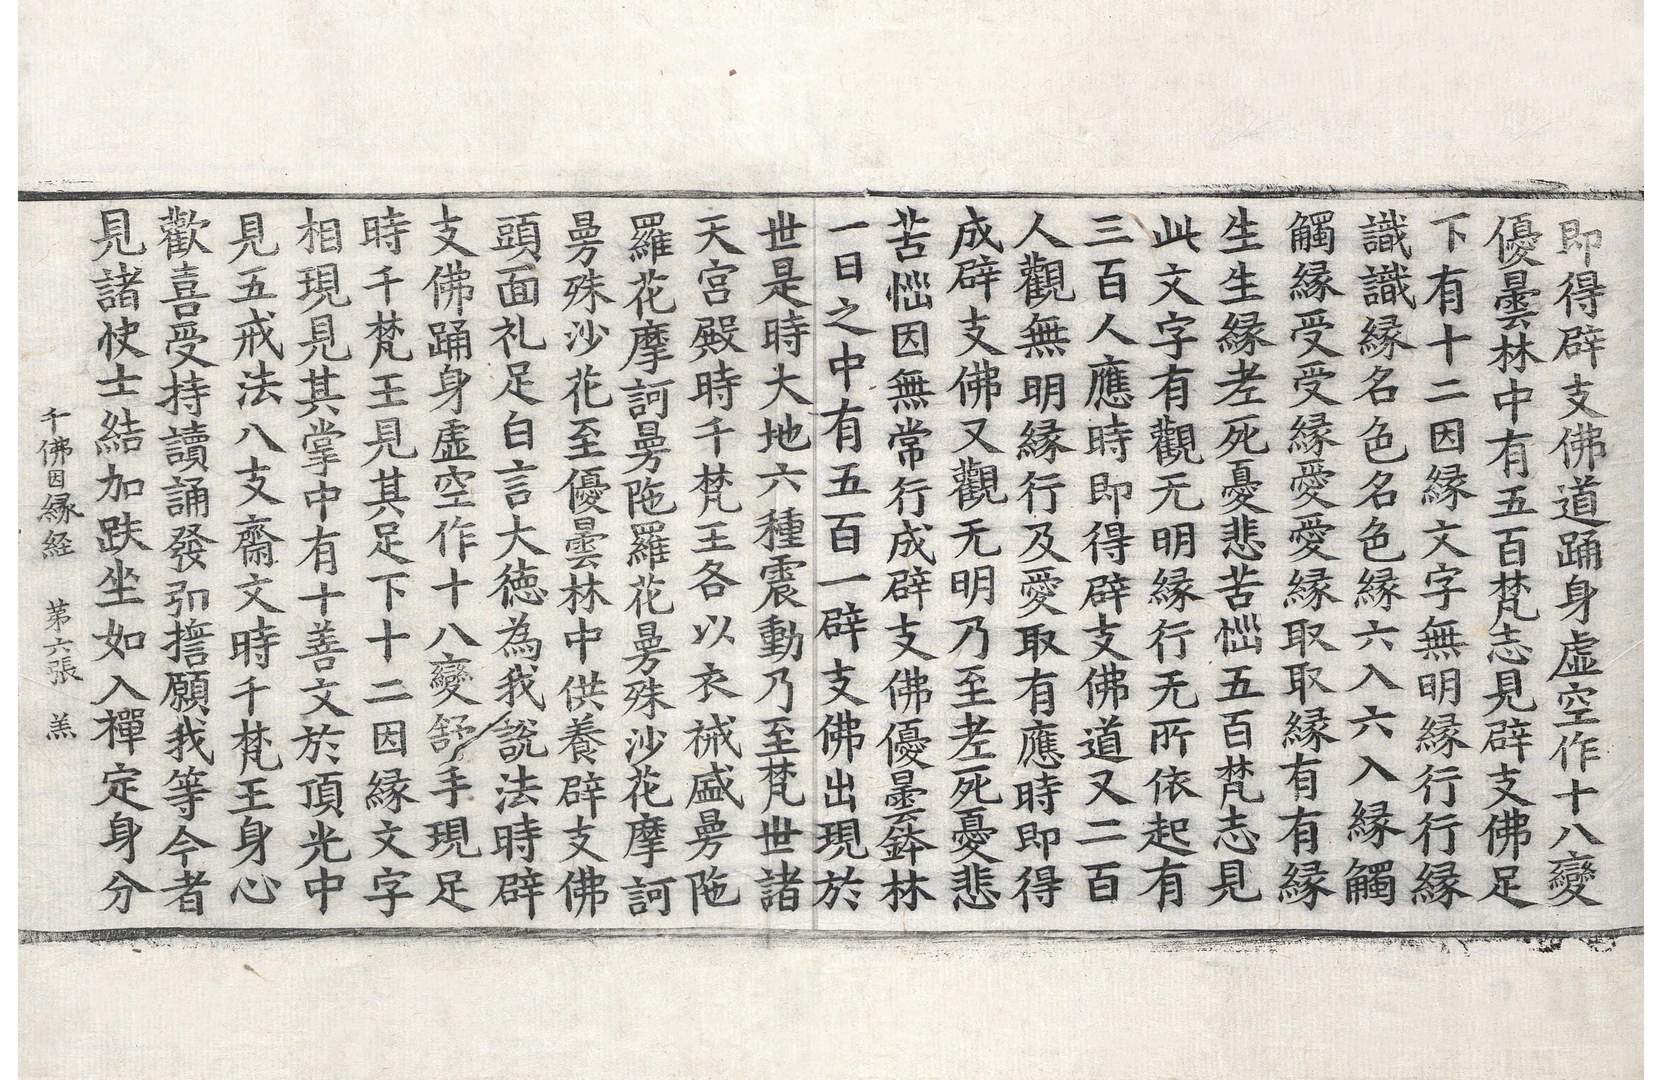 即得辟支佛道踊身虛空作十八變
優曇林中有五百梵志見辟支佛足
下有十二因緣文字無明緣行行緣
識識緣名色名色緣六入六入緣觸
觸緣受受緣愛愛緣取取緣有有緣
生生緣老死憂悲苦惱五百梵志見
此文字有觀无明緣行无所依起有
三百人應時即得辟支佛道又二百
人觀無明緣行及愛取有應時即得
成辟支佛又觀无明乃至老死憂悲
苦惱因無常行成辟支佛優曇鉢林
一日之中有五百一辟支佛出現於
世是時大地六種震動乃至梵世諸
天宮殿時千梵王各以衣裓盛曼陁
羅花摩訶曼陁羅花曼殊沙花摩訶
曼殊沙花至優曇林中供養辟支佛
頭面礼足白言大德為我說法時辟
支佛踊身虛空作十八變舒手現足
時千梵王見其足下十二因緣文字
相現見其掌中有十善文於頂光中
見五戒法八支齋文時千梵王身心
歡喜受持讀誦發弘誓願我等今者
見諸快士結加趺坐如入禪定身分
千佛因緣経 第六張 羔